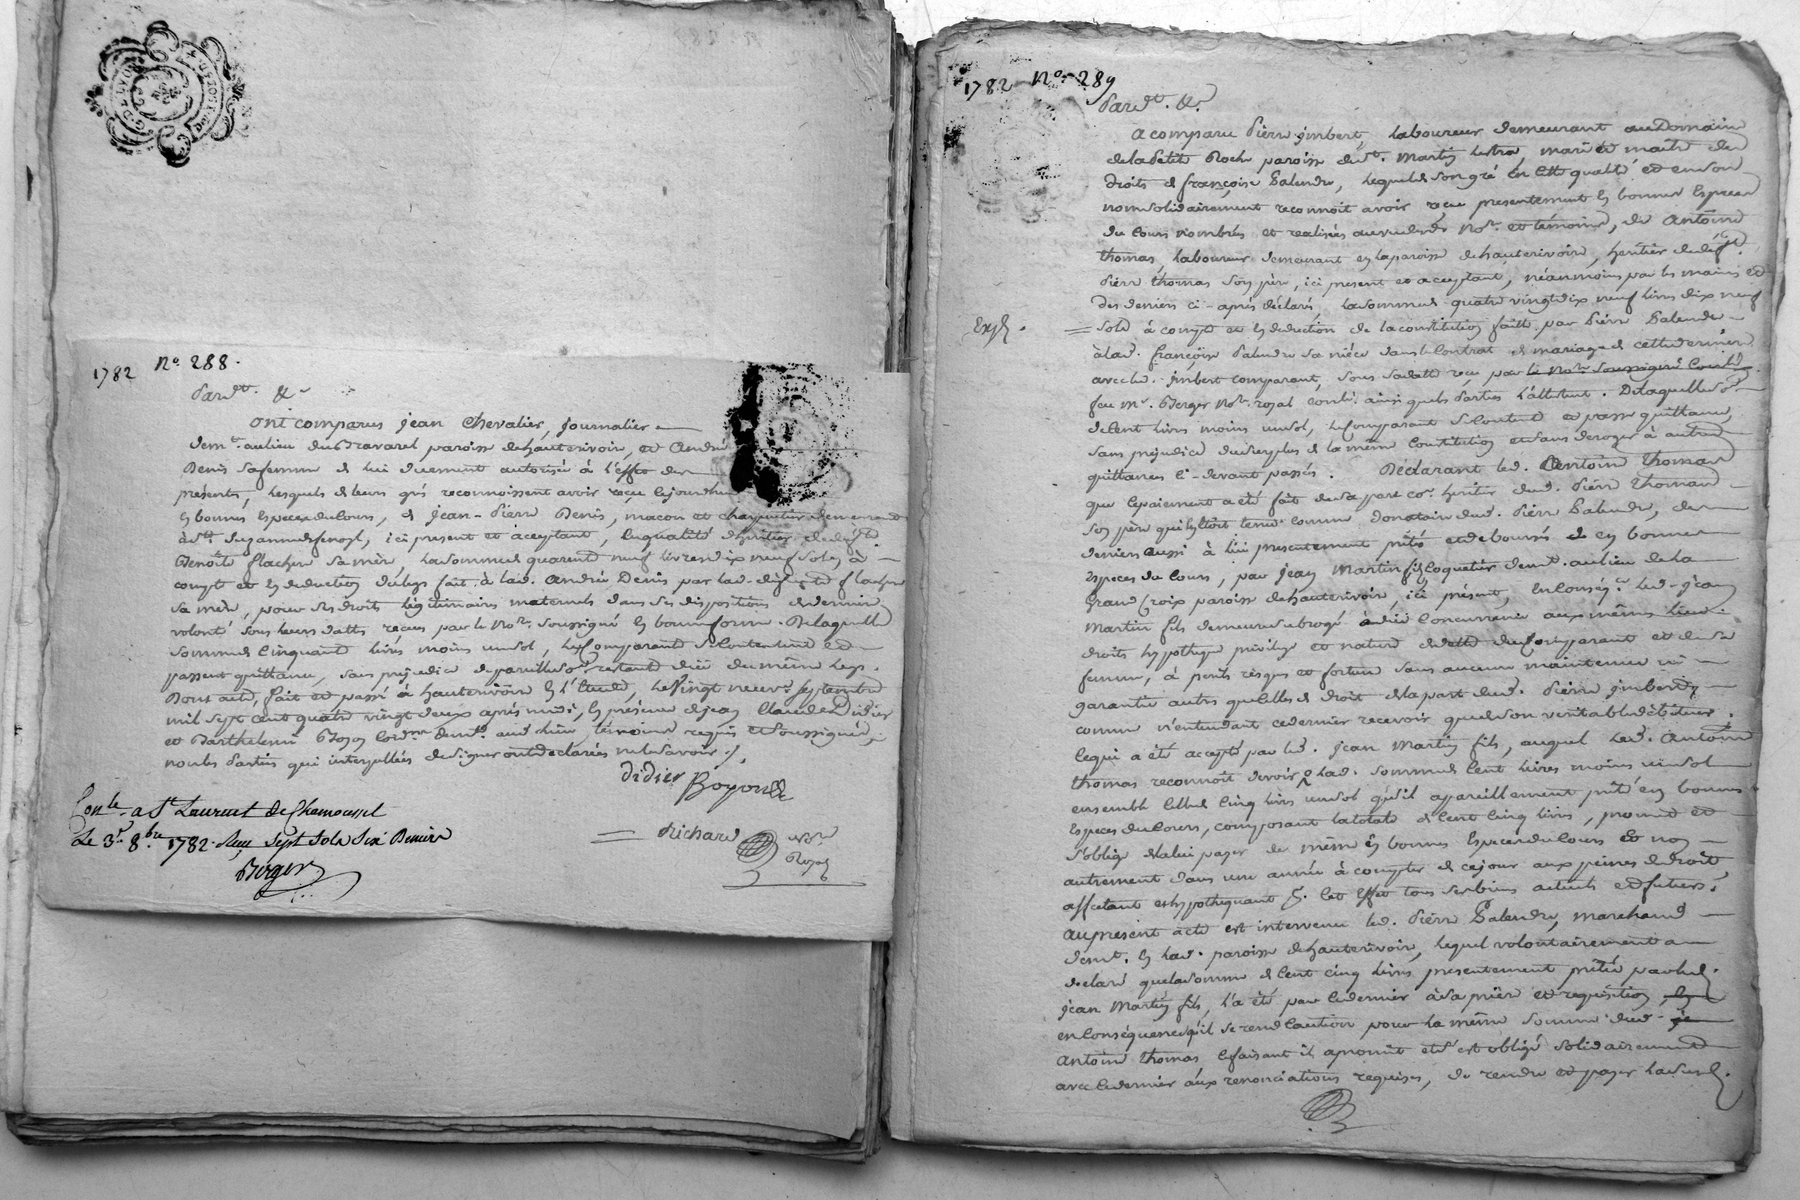 1782 No. 288.
Pardt. &c
Ont comparus jean Chevalier, journalier
demt. au lieu du travarel paroisse de hauterivoire, et André
Denis sa femme de lui duement autorisée à l'effet des
présentes, lesquels de leurs grés reconnoissent avoir reçu cejourdhui
en bonnes especes du cours, de jean-Pierre Denis, maçon et charpentier demeurant
à Ste. , ici present et aceptant, en qualité d'héritier de defte.
Benoîte flacher sa mère, la somme de quarente neuf livres dix neuf sols, à
compte et en deduction du legs fait à lad. Andrée Denis par lad. defunte flacher
sa mère, pour ses droits légitimaires maternels dans ses dispositions de derniere
volonté sous leurs dattes reçues par le Nore. soussigné en bonne forme. De laquelle
somme de cinquante livres moins un sol, les Comparants se contentent et
passent quittance, sans préjudice de pareille se. restant due du même legs.
Dont acte, fait et passé à hauterivoire en l'Etude, le vingt neuf septembre
mil sept cent quatre vingt deux après midi, en présence de jean Claude Didier
et Barthelemi Boyon demt. aud. lieu, témoins requis et soussignés,
non les parties qui interpellées de signer ont declarées ne le savoir ./.
didier Boyon
Richard Nore. Royal
Conle. a St Laurent de Chamousset
Le 3e. 8bre 1782. Reçu Sept Sols Six Deniers
Berger
1782 No. 289
Pardt. &c
A comparu Pierre jmbert, laboureur demeurant au Domaine
de la Petite Roche paroisse de St. Martin Lestra, mari et maître des
droits de françoise Palendre, lequel de son gré en cette qualité et en son
nom solidairement reconnoit avoir reçu presentement en bonnes especes
du cours nombrés et realisées au vu desdts. Nore. et témoins, de Antoine
thomas, laboureur demeurant en la paroisse de hauterivoire, heritier de deft.
Pierre thomas son père, ici present et aceptant, néanmoins par les mains et
des deniers ci-après déclarés, la somme de quatre vingt dix neuf livres dix neuf
Expé.
sols à compte et en deduction de la constitution faitte par Pierre Palendre
à lad. françoise Palendre sa nièce dans le contrat de mariage de cette derniere
avec led. jmbert comparant, sous sa datte reçu par le Nore. soussigné
feu Me. Berger Nore. royal ainsi que les Parties l'attestent. De laquelle se.
de cent livres moins un sol, le Comparant se contente et passe quittance,
sans préjudice du surplus de la même constitution et sans deroger à autres
quittances ci-devant passés. Déclarant led. Antoine thomas
que le paiement a été fait de sa part ce. heritier dud. Pierre thomas
son père qui en étoit tenu comme donataire dud. Pierre Palendre, des
deniers aussi à lui presentement prêtés et deboursés en bonnes
especes du cours, par jean Martin fils Coquetier demt. au lieu de la
grand Croix paroisse de hauterivoire, ici présent, en conséqce. led. jean
Martin fils demeure subrogé à due concurrence aux mêmes lieu
droits hypotheque privilege et nature de dette du Comparant et de sa
femme, à perils risques et fortune sans aucune maintenue ni
garantie autres que celles de droit de la part dud. Pierre jmbert,
comme n'entendant ce dernier recevoir que de son veritable débiteur,
ce qui a été accepté par led. jean Martin fils, auquel led. Antoine
thomas reconnoit devoir lad. somme de cent livres moins un sol
ensemble celle de cinq livres un sol qu'il a pareillement prêté en bonnes
especes du cours, composant la totale de cent cinq livres, promet et
s'oblige de la lui payer de même en bonnes especes du cours et non
autrement dans une année à compter de cejour aux peines de droit,
affectant et hypothequant pr. cet effet tous ses biens actuels et futurs.
Au présent acte est intervenu led. Pierre Palendre, marchand
demt. en lad. paroisse de hauterivoire, lequel volontairement a
declaré que la somme de cent cinq livres presentement prêtée par led.
jean Martin fils, l'a été par ce dernier à sa prière et requisition,
en conséquence qu'il se rend caution pour la même somme dud.
Antoine thomas ce faisant il a promit et s'est obligé solidairement
avec ce dernier aux renonciations requises, de rendre et payer lad. se.